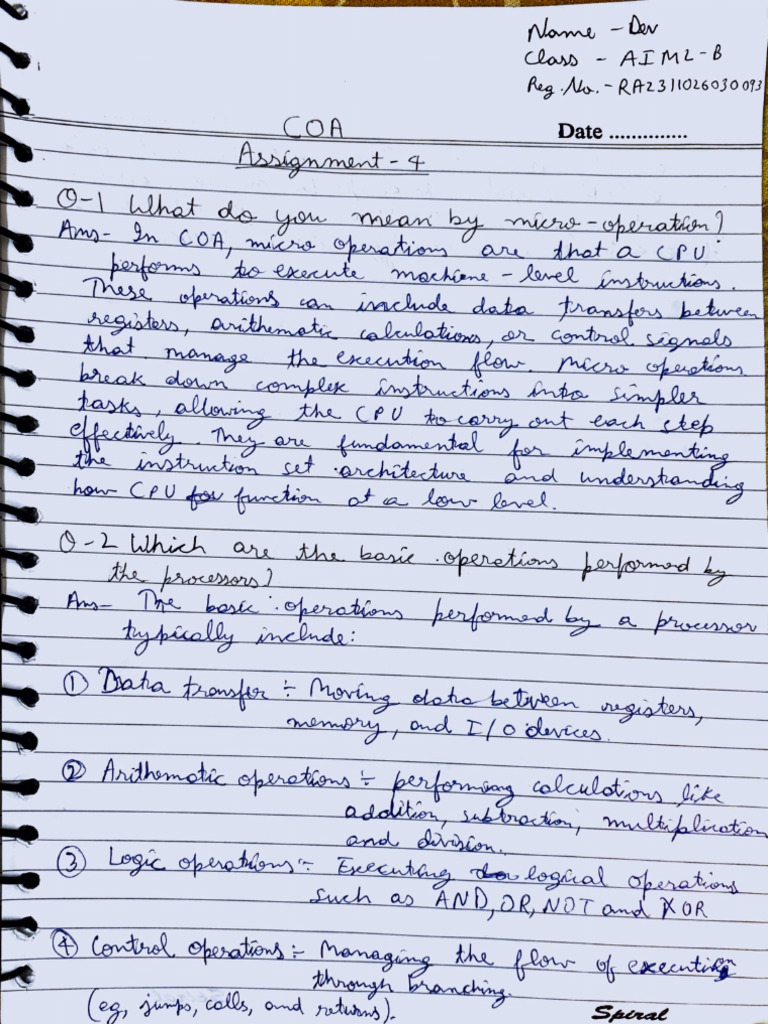 Name - Dev
Class - AIML-B
Reg. No. - RA2311026030093
COA
Date ..............
Assignment - 4
Q-1 What do you mean by micro-operation?
Ans- In COA, micro operations are that a CPU
performs to execute machine-level instructions.
These operations can include data transfers between
registers, arithematic calculations, or control signals
that manage the execution flow. Micro operations
break down complex instructions into simpler
tasks, allowing the CPU to carry out each step
effectively. They are fundamental for implementing
the instruction set architecture and understanding
how CPU function at a low level.
Q-2 Which are the basic operations performed by
the processors?
Ans- The basic operations performed by a processor
typically include:
① Data transfer :- Moving data between registers,
memory, and I/O devices.
② Arithematic operations :- performing calculations like
addition, subtraction, multiplication
and division.
③ Logic operations :- Executing logical operations
such as AND, OR, NOT and XOR
④ Control operations :- Managing the flow of execution
through branching.
(eg, jumps, calls, and returns).
Spiral